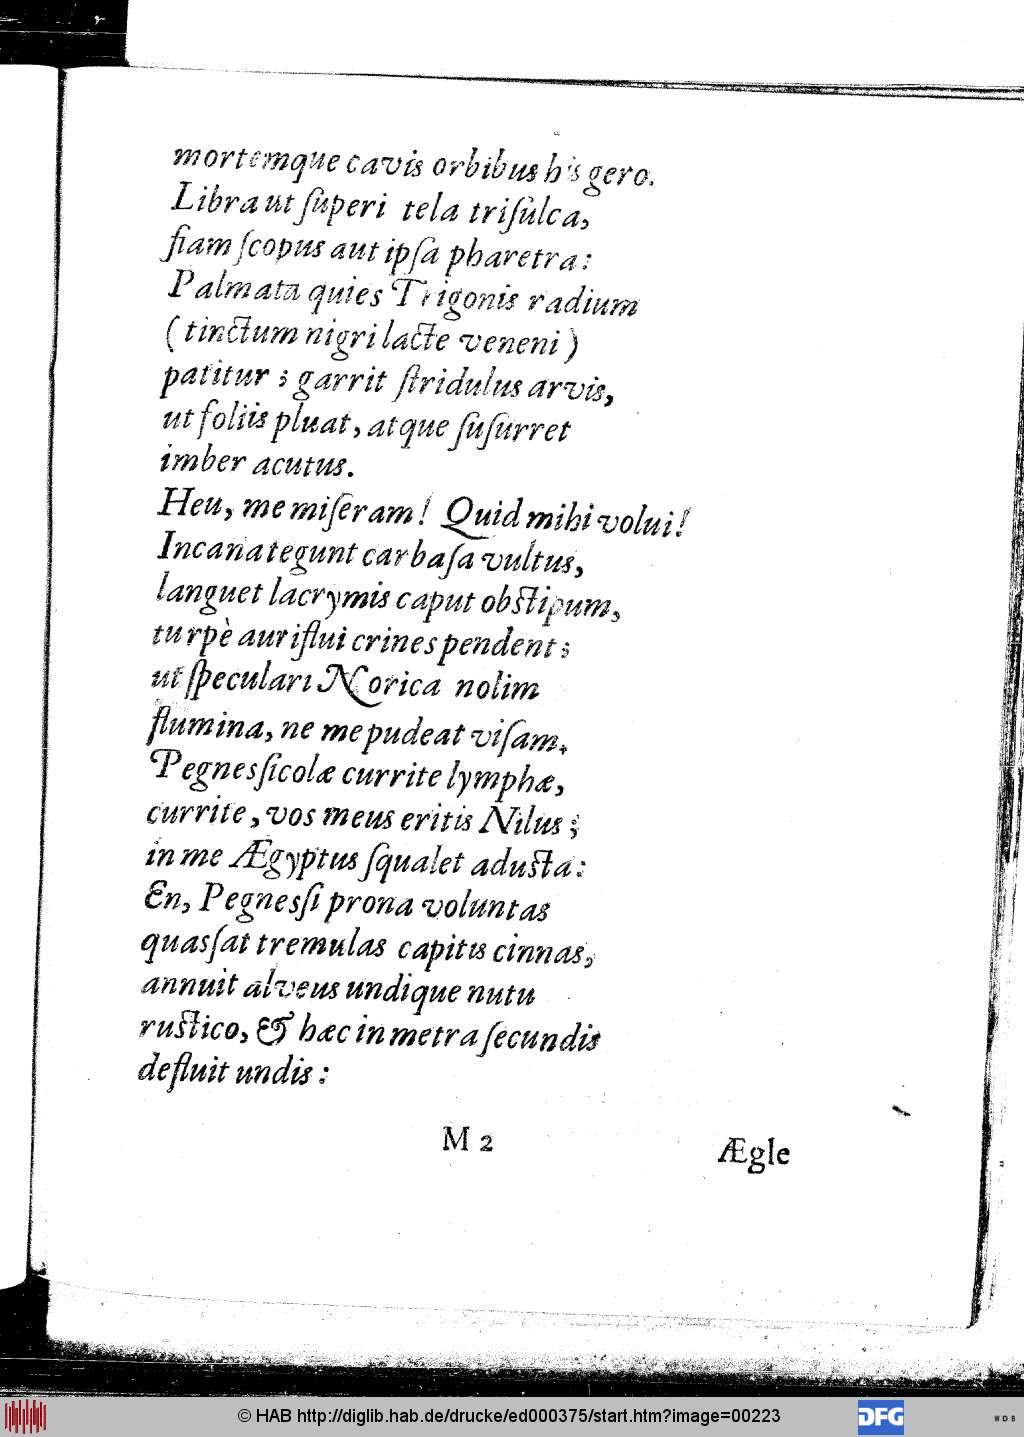 mortemque cavis orbibus his gero.
Libra ut ſuperi tela triſulca,
fiam ſcopus aut ipſa pharetra:
Palmata quies Trigonis radium
(tinctum nigri lacte veneni)
patitur; garrit ſtridulus arvis,
ut foliis pluat, atque ſuſurret
imber acutus.
Heu, me miſeram! Quid mihi volui!
Incana tegunt carbaſa vultus,
languet lacrymis caput obſtipum,
turpè auriflui crines pendent;
ut ſpeculari Norica nolim
flumina, ne me pudeat viſam.
Pegnesſicolæ currite lymphæ,
currite, vos meus eritis Nilus;
in me Ægyptus ſqualet aduſta:
En, Pegnesſi prona voluntas
quasſat tremulas capitis cinnas,
annuit alveus undique nutu
ruſtico, & hæc in metra ſecundis
defluit undis:
M 2 Ægle
© HAB http://diglib.hab.de/drucke/ed000375/start.htm?image=00223
DFG
WDB